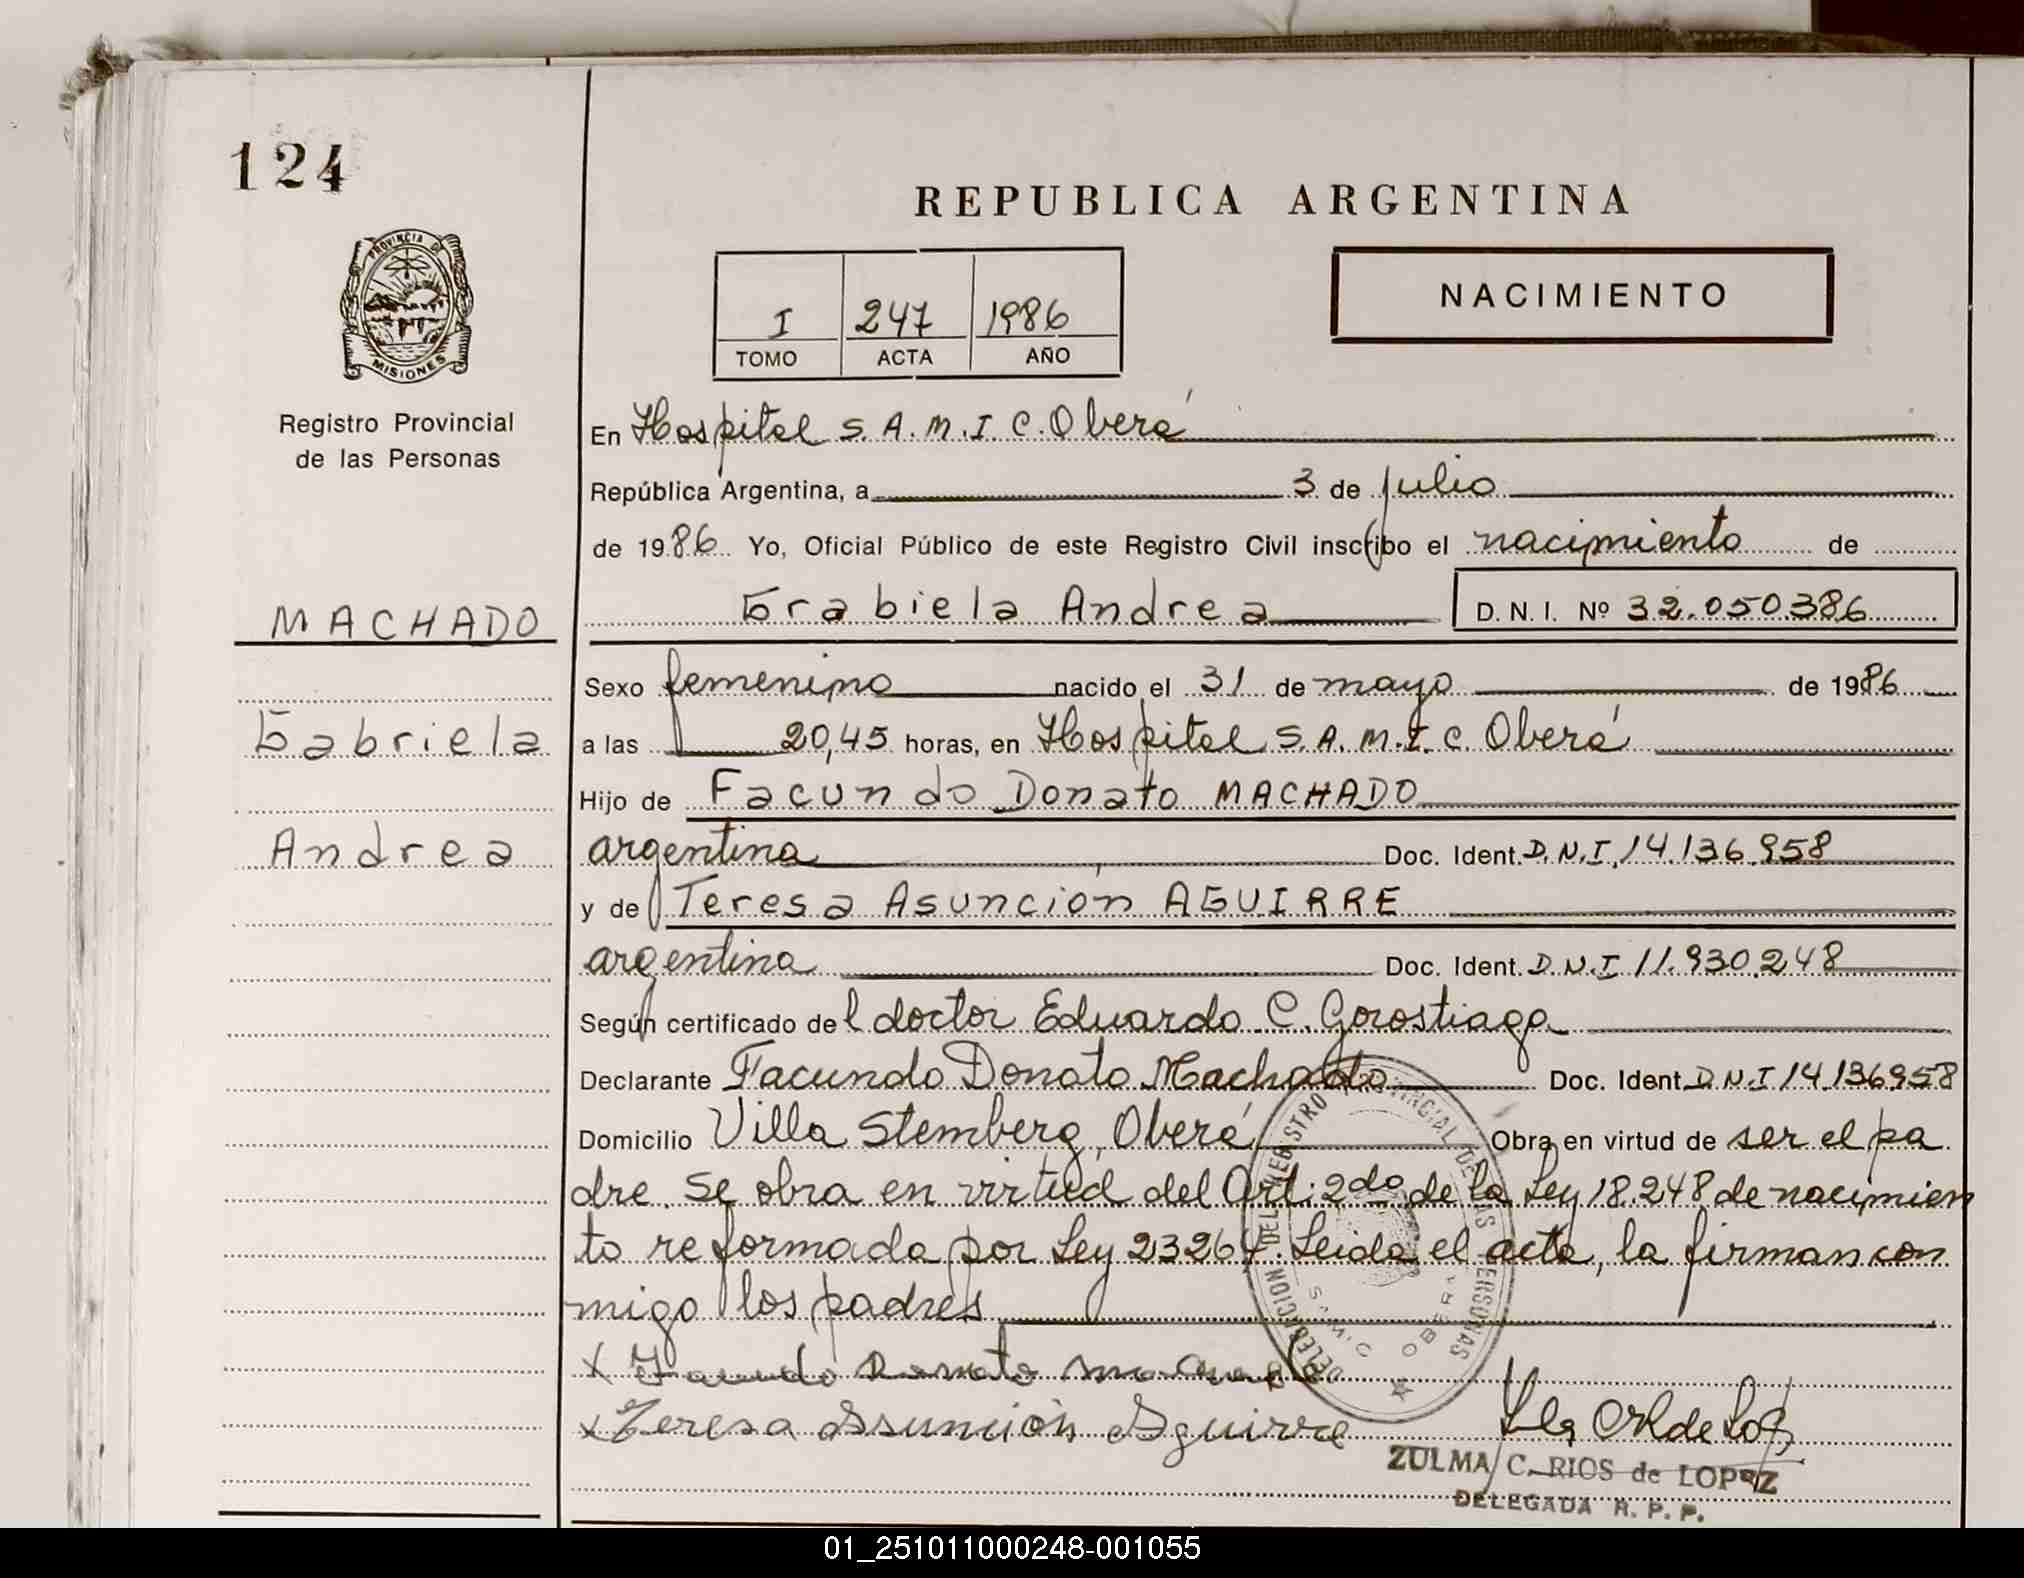 124
REPUBLICA ARGENTINA
PROVINCIA DE
MISIONES
I 247 1986
TOMO ACTA AÑO
NACIMIENTO
Registro Provincial
de las Personas
En Hospital S.A.M.I.C. Oberá
República Argentina, a 3 de julio
de 1986 Yo, Oficial Público de este Registro Civil inscribo el nacimiento de
Grabiela Andrea D.N.I. Nº 32.050.386
MACHADO
Sexo femenino nacido el 31 de mayo de 1986
Gabriela
a las 20,45 horas, en Hospital S.A.M.I.C. Oberá
Hijo de Facundo Donato MACHADO
Andrea
argentina Doc. Ident. D.N.I. 14.136.958
y de Teresa Asunción AGUIRRE
argentina Doc. Ident. D.N.I 11.930.248
Según certificado del doctor Eduardo C. Gorostiaga
Declarante Facundo Donato Machado Doc. Ident D.N.I 14.136958
Domicilio Villa Stemberg, Oberá Obra en virtud de ser el pa
dre. Se obra en virtud del Art: 2do de la Ley 18.248 de nacimien
to reformada por Ley 23264. Leida el acta, la firman con
migo los padres
DELEGACION DEL REGISTRO PROVINCIAL DE LAS PERSONAS
S.A.M.I.C OBERA
x Facundo Donato Machado
x Teresa Asunción Aguirre
ZULMA C. RIOS de LOPEZ
DELEGADA R. P. P.
01_251011000248-001055